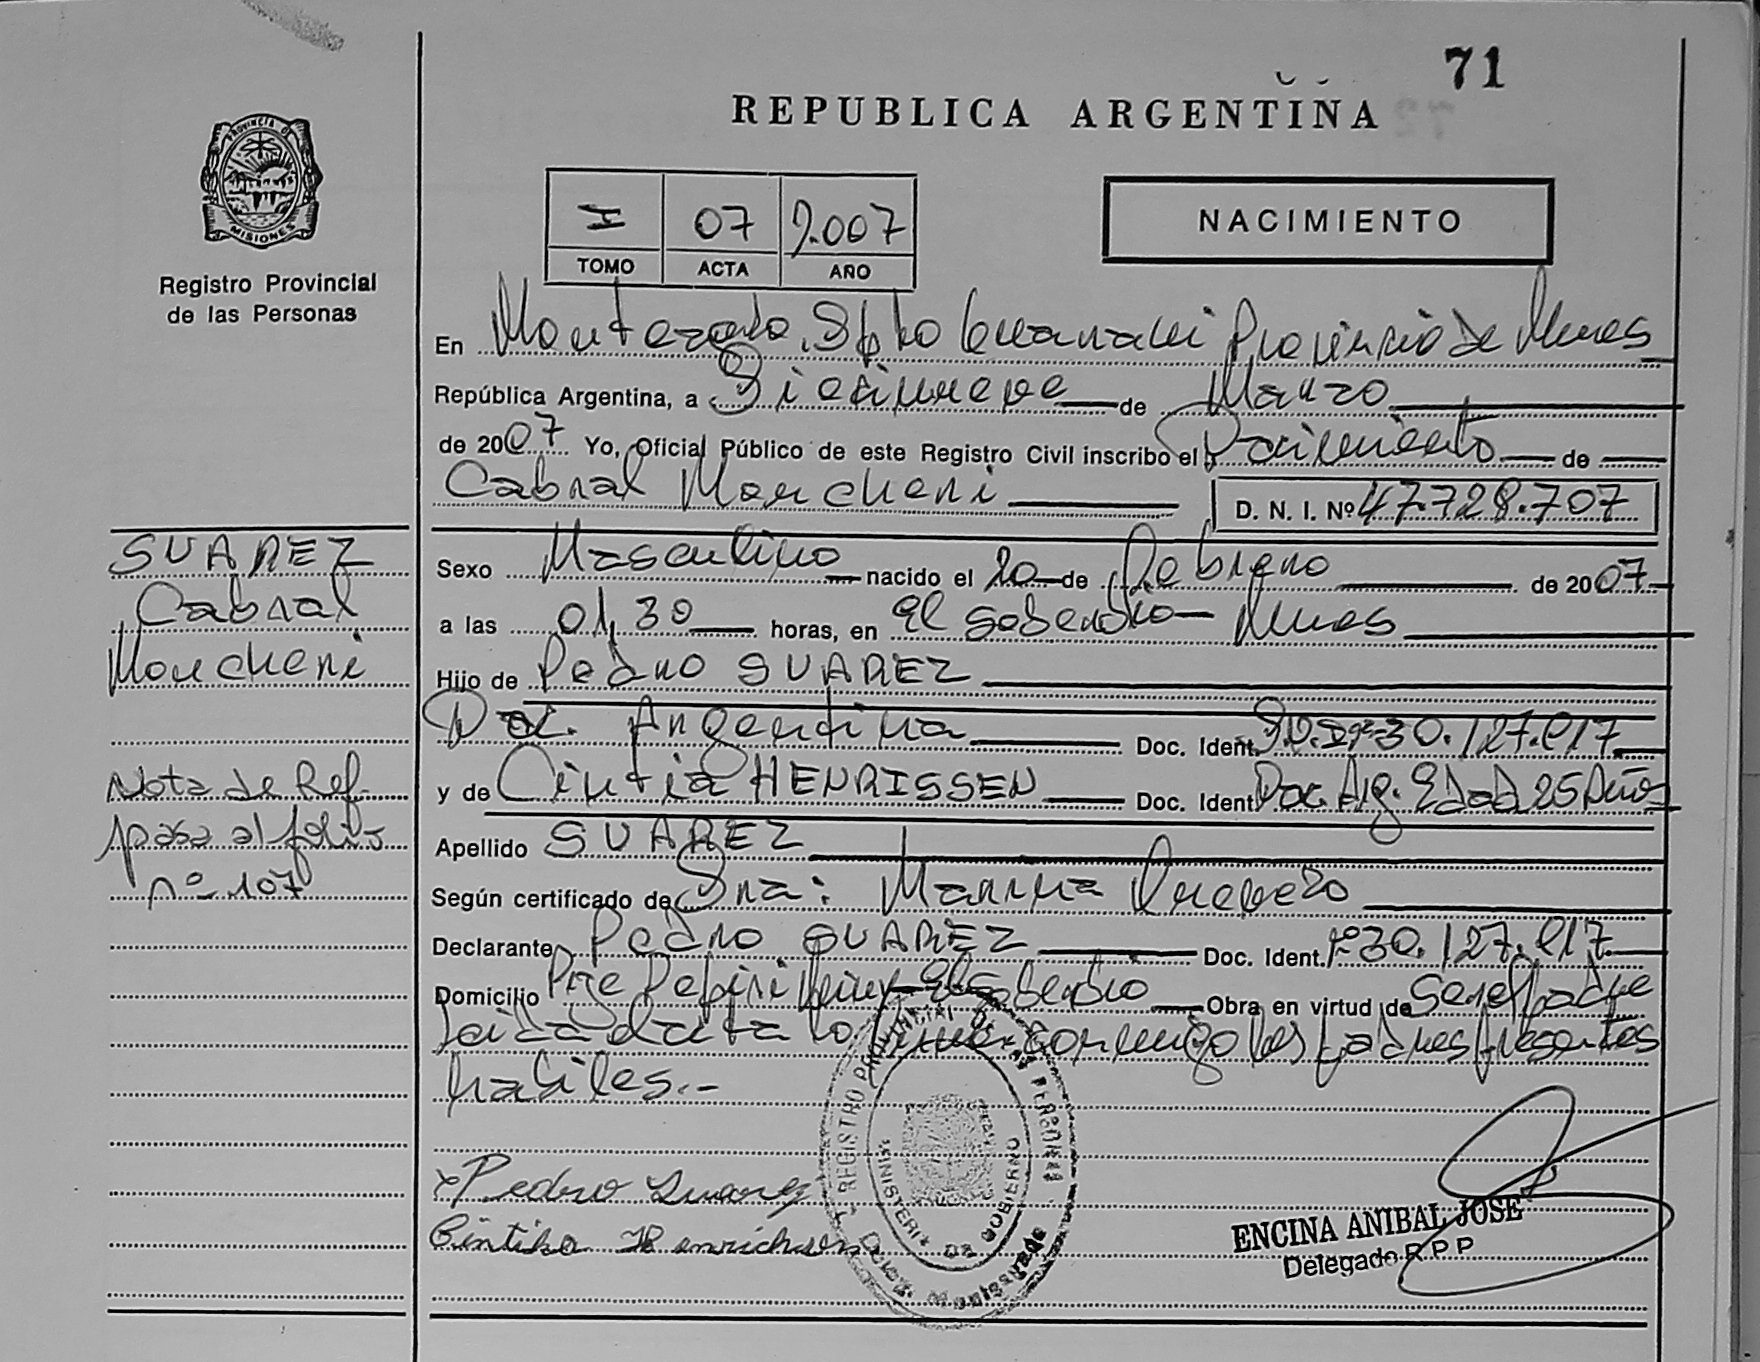 71
REPUBLICA ARGENTINA
PROVINCIA DE
MISIONES
Registro Provincial
de las Personas
I 07 2.007
TOMO ACTA AÑO
NACIMIENTO
En Montecarlo, Dpto Provincia de Mnes
República Argentina, a Diecinueve de Marzo
de 2007 Yo, Oficial Público de este Registro Civil inscribo el Nacimiento de
Cabral D. N. I. Nº 47.728.707
SUAREZ
Cabral
Sexo Masculino nacido el 20 de Febrero de 2007
a las 01,30 horas, en El Soberbio - Mnes
Hijo de Pedro SUAREZ
Nac. Argentina Doc. Ident. 30.127.017
y de Cintia HENRISSEN Doc. Ident. Nac. Arg. Edad 25 Años
Nota de Ref.
pasa al folio
nº 107
Apellido SUAREZ
Según certificado de Sra: Marina
Declarante Pedro SUAREZ Doc. Ident. Nº 30.127.017
Domicilio Pje El Soberbio Obra en virtud de ser el padre
leida acta la conmigo los padres presentes
habiles.-
x Pedro Suarez
Cintika Henrichsen
REGISTRO PROVINCIAL DE LAS PERSONAS
MINISTERIO DE GOBIERNO
ENCINA ANIBAL JOSE
Delegado R.P.P